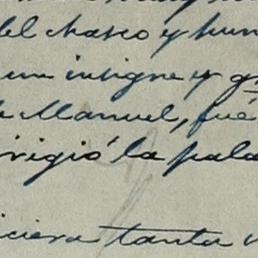 del chasco y hun
un insigne y g
Manuel, fué
irigió la pala
iciera tanta